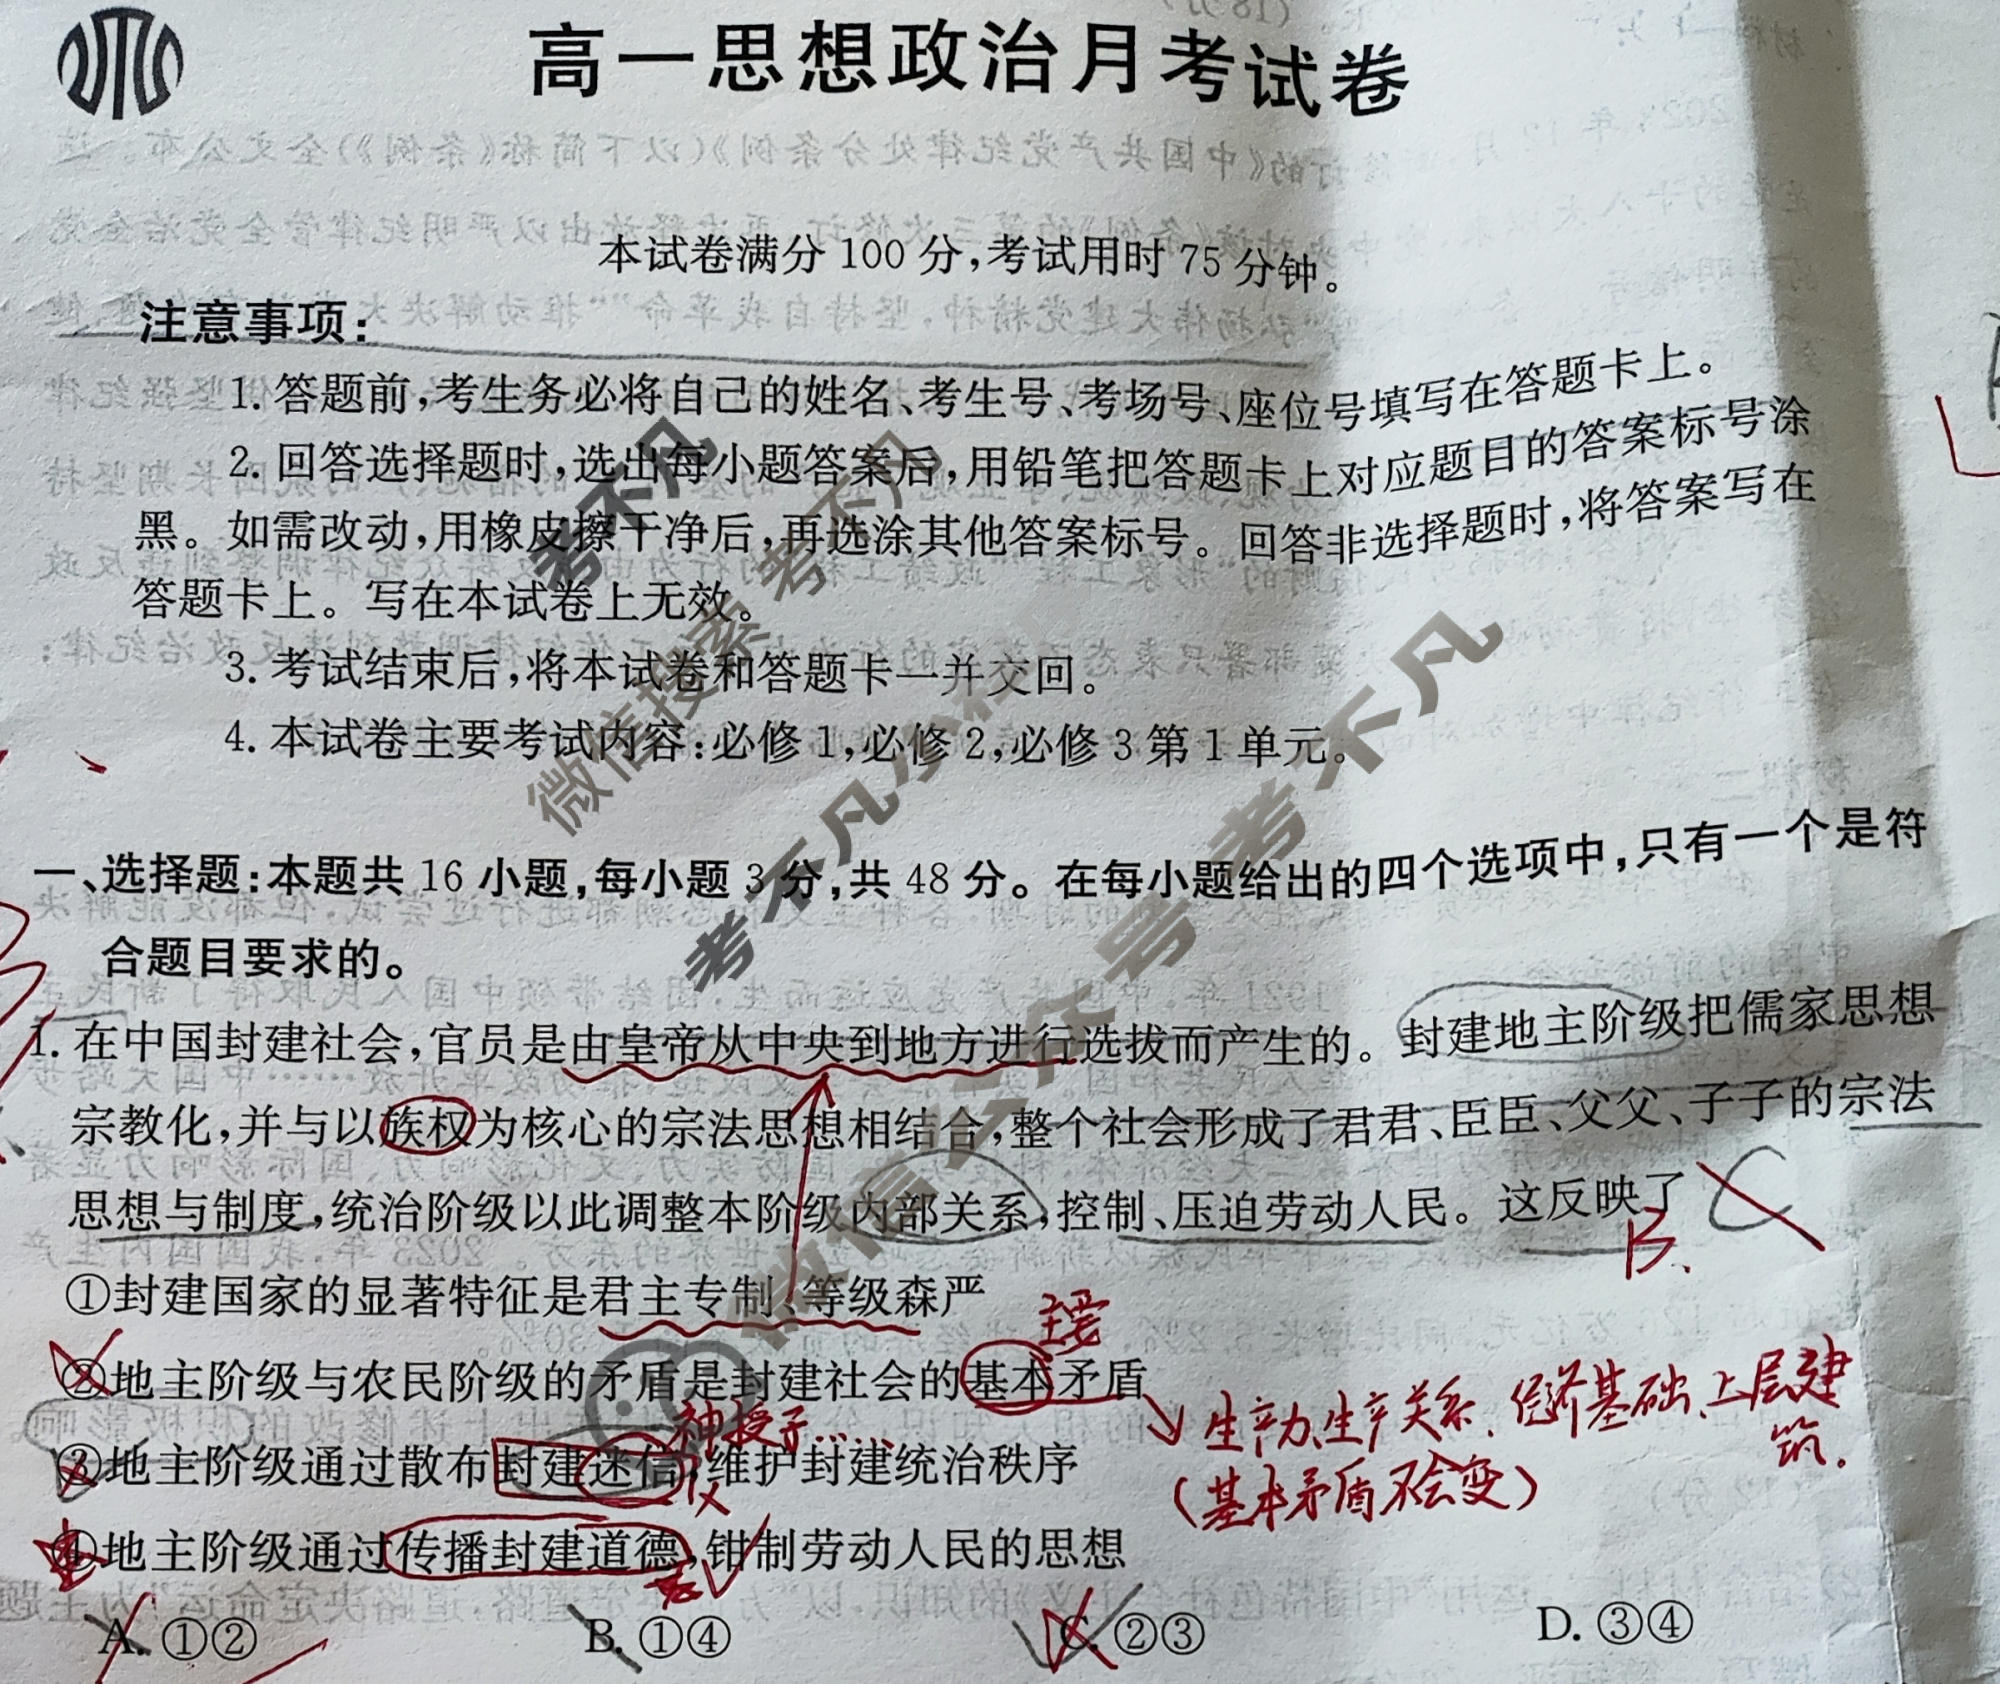 高一思想政治月考试卷
本试卷满分100分,考试用时75分钟。
注意事项:
1. 答题前,考生务必将自己的姓名、考生号、考场号、座位号填写在答题卡上。
2. 回答选择题时,选出每小题答案后,用铅笔把答题卡上对应题目的答案标号涂
黑。如需改动,用橡皮擦干净后,再选涂其他答案标号。回答非选择题时,将答案写在
答题卡上。写在本试卷上无效。
3. 考试结束后,将本试卷和答题卡一并交回。
4. 本试卷主要考试内容:必修1,必修2,必修3第1单元。
一、选择题:本题共16小题,每小题3分,共48分。在每小题给出的四个选项中,只有一个是符
合题目要求的。
1. 在中国封建社会,官员是由皇帝从中央到地方进行选拔而产生的。封建地主阶级把儒家思想
宗教化,并与以族权为核心的宗法思想相结合,整个社会形成了君君、臣臣、父父、子子的宗法
思想与制度,统治阶级以此调整本阶级内部关系,控制、压迫劳动人民。这反映了
C
B.
①封建国家的显著特征是君主专制、等级森严
主要
②地主阶级与农民阶级的矛盾是封建社会的基本矛盾
生产力、生产关系、经济基础、上层建
筑.
(基本矛盾不会变)
神授予……
③地主阶级通过散布封建迷信,维护封建统治秩序
权
④地主阶级通过传播封建道德,钳制劳动人民的思想
A. ①② B. ①④ C. ②③ D. ③④
考不凡
微信搜索 考不凡
考不凡
微信公众号 考不凡